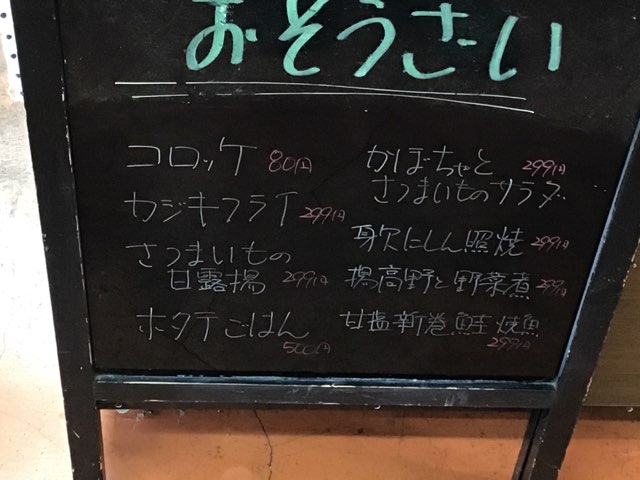 おそうざい
コロッケ 80円
カジキフライ 299円
さつまいもの
甘露揚 299円
ホタテごはん
500円
かぼちゃと 299円
さつまいものサラダ
身欠にしん照焼 299円
揚高野と野菜煮 299円
甘塩新巻鮭焼魚
299円